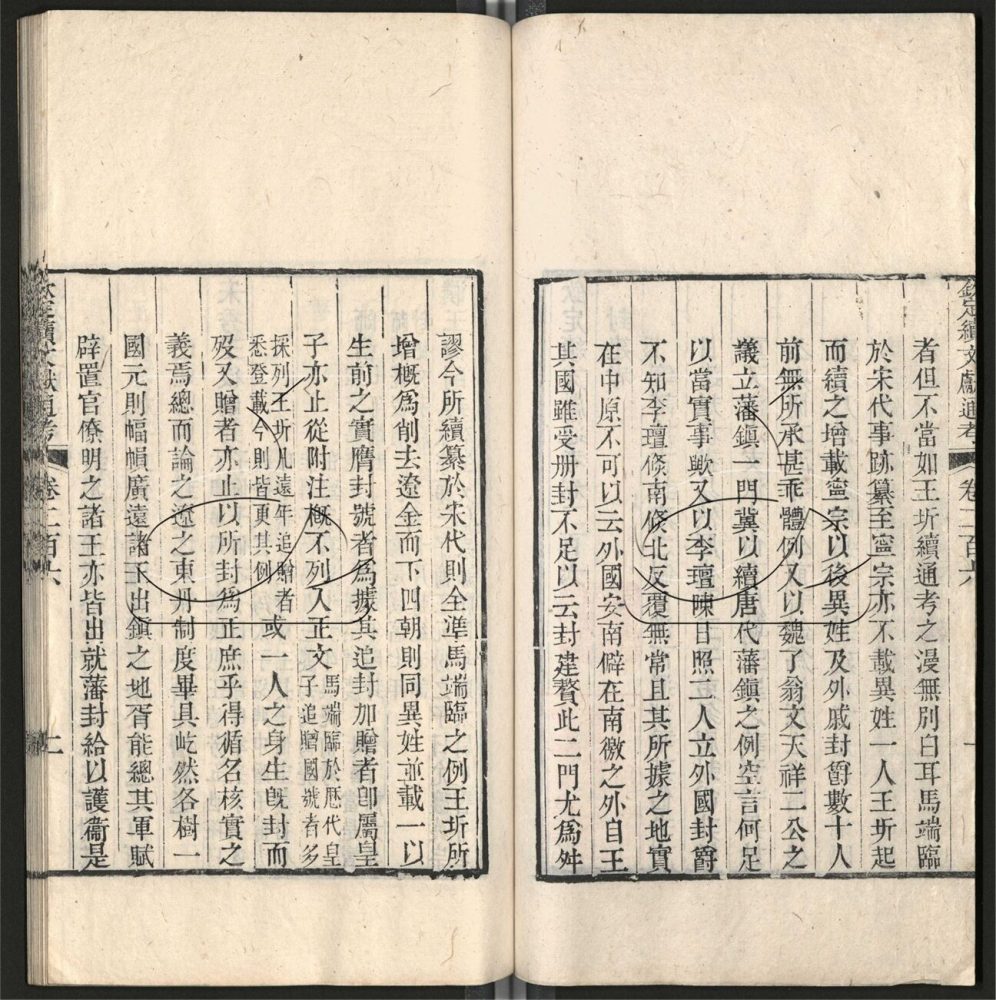 欽定續文獻通考 卷二百六
者但不當如王圻續通考之漫無別白耳馬端臨
於宋代事跡纂至寧宗亦不載異姓一人王圻起
而續之增載寧宗以後異姓及外戚封爵數十人
前無所承甚乖體例又以魏了翁文天祥二公之
議立藩鎮一門冀以續唐代藩鎮之例空言何足
以當實事歟又以李璮陳日照二人立外國封爵
不知李璮倏南倏北反覆無常且其所據之地實
在中原不可以云外國安南僻在南徼之外自王
其國雖受册封不足以云封建贅此二門尤爲舛
謬今所續纂於宋代則全準馬端臨之例王圻所
增概爲削去遼金而下四朝則同異姓並載一以
生前之實膺封號者爲據其追封加贈者卽屬皇
子亦止從附注概不列入正文馬端臨於歷代皇子追贈國號者多
採列王圻凡遠年追贈者悉登載今則皆更其例或一人之身生旣封而
歿又贈者亦止以所封爲正庶乎得循名核實之
義焉總而論之遼之東丹制度畢具屹然各樹一
國元則幅幀廣遠諸王出鎮之地胥能總其軍賦
辟置官僚明之諸王亦皆出就藩封給以護衞是
欽定續文獻通考 卷二百六 二